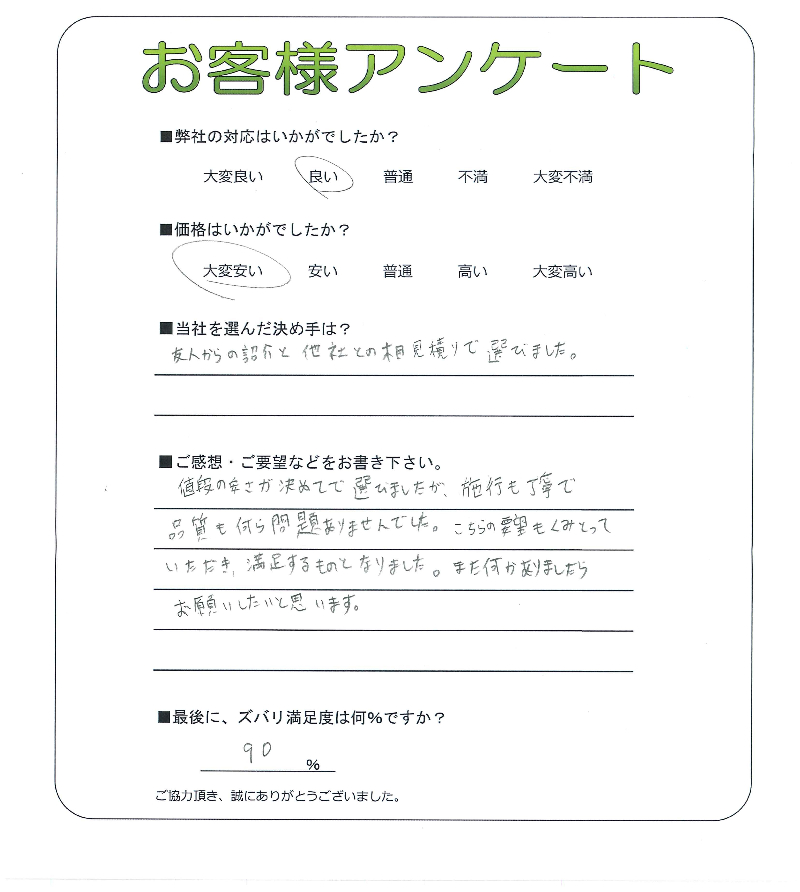 お客様アンケート
■弊社の対応はいかがでしたか？
大変良い 良い 普通 不満 大変不満
■価格はいかがでしたか？
大変安い 安い 普通 高い 大変高い
■当社を選んだ決め手は？
友人からの紹介と他社との相見積りで選びました。
■ご感想・ご要望などをお書き下さい。
値段の安さが決めてで選びましたが、施行も丁寧で
品質も何ら問題ありませんでした。こちらの要望もくみとって
いただき、満足するものとなりました。また何かありましたら
お願いしたいと思います。
■最後に、ズバリ満足度は何%ですか？
90 %
ご協力頂き、誠にありがとうございました。